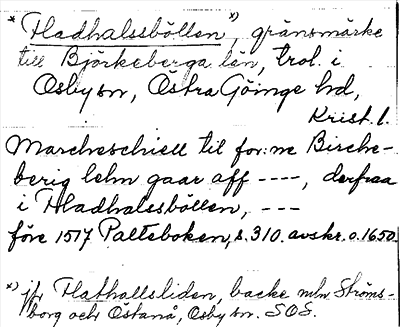 * Hladhalssböllen *), gränsmärke
till Björkeberga län, trol. i
Osby sn, Östra Göinge hd,
Krist. l.
Marcheschiell til for:ne Birche-
berig lehn gaar aff ----, derfraa
i Hladhalssböllen, ---
före 1517 Palteboken, s. 310. avskr. o. 1650.
*) jfr Flathallsliden, backe mln Ströms-
borg och Östanå, Osby sn. SOS.